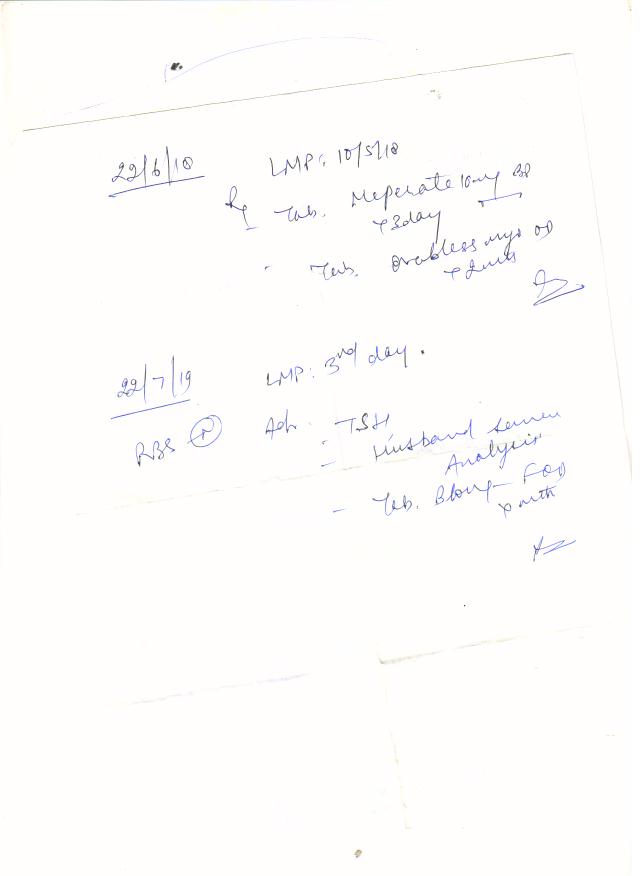 22/6/18 LMP: 10/5/18
Rx Tab. Meperate 10mg BD
x 3day
Tab. Ovabless OD
22/7/19 LMP: 3rd day.
RBS Adv: TSH
- Husband Semen
Analysis
- Tab. OD
x mth